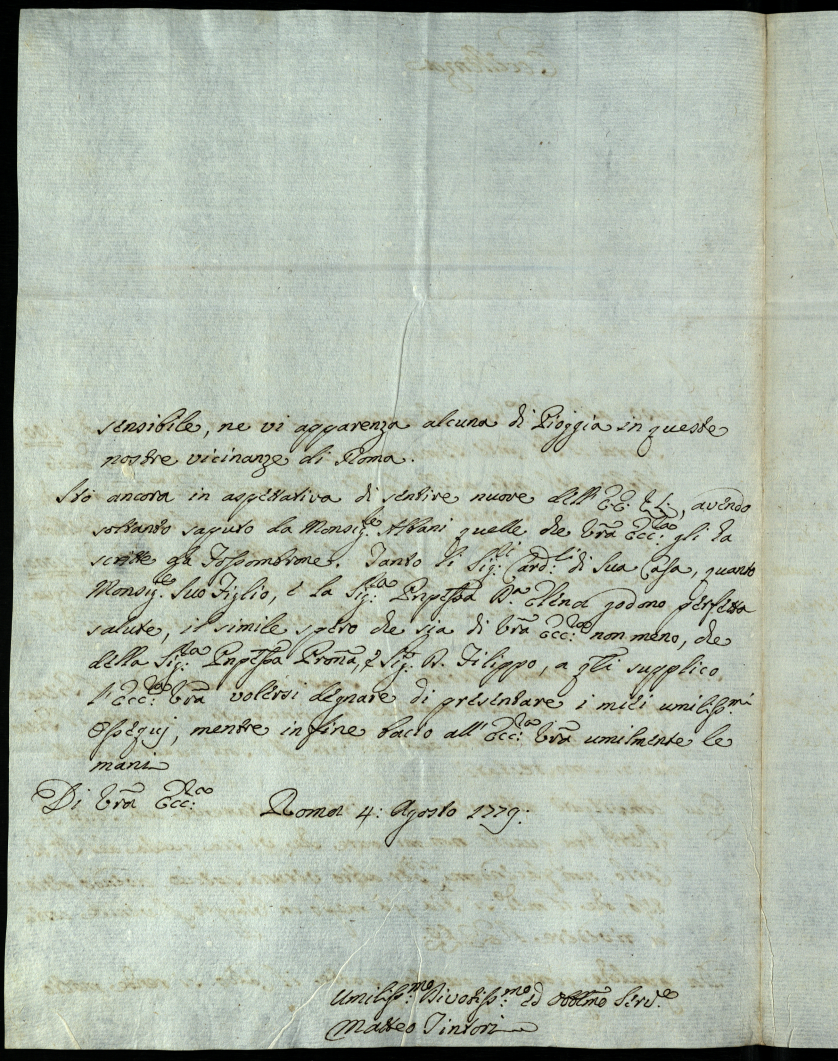 sensibile, ne vi apparenza alcuna di Pioggia in queste
nostre vicinanze di Roma.
Stò ancora in aspettativa di sentire nuove dell' EE: avendo
soltanto saputo da Monsig.re Albani quelle che Vrã Ecc:za gli ha
scritte da Fossombrone. Tanto il Sig:r Card:l di Sua Casa, quanto
Monsig.re Suo Figlio, è la Sig:ra Pnpessa D.a Elena godono perfetta
salute, il simile spero che sia di Vrã Ecc:za non meno, che
della Sig:ra Pnpessa Pronã, è Sig:r D. Filippo, a quali supplico
l'Ecc:za Vrã volersi degnare di presentare i miei umiliss:mi
Ossequj, mentre in fine bacio all' Ecc:za Vrã umilmente le
mani
Di Vrã Ecc:za Roma 4: Agosto 1779:
Umiliss:mo Divotiss:mo ed Obblmo Serv:e
Matteo Tintori